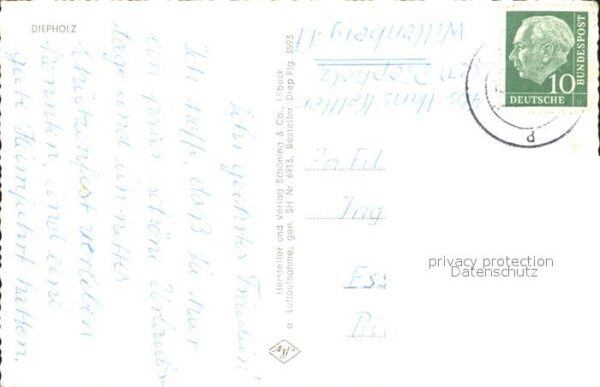 DIEPHOLZ
Sehr geehrtes Fräulein!
Ich hoffe, daß Sie nur
ein paar schöne Urlaubs
tage und ein nettes
Schützenfest verleben
konnten und eine
gute Heimfahrt hatten.
Hersteller und Verlag Schöning & Co., Lübeck
Luftaufnahme, gen. SH Nr. 6913, Bestellnr. Diep Flg. 3593
Agfa
Hans
Diepholz
DEUTSCHE
BUNDESPOST
10
d
Frl
Ing
Ess
privacy protection
Datenschutz